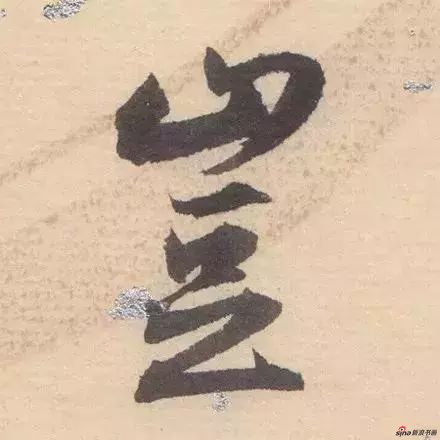 豈
sina新浪书画